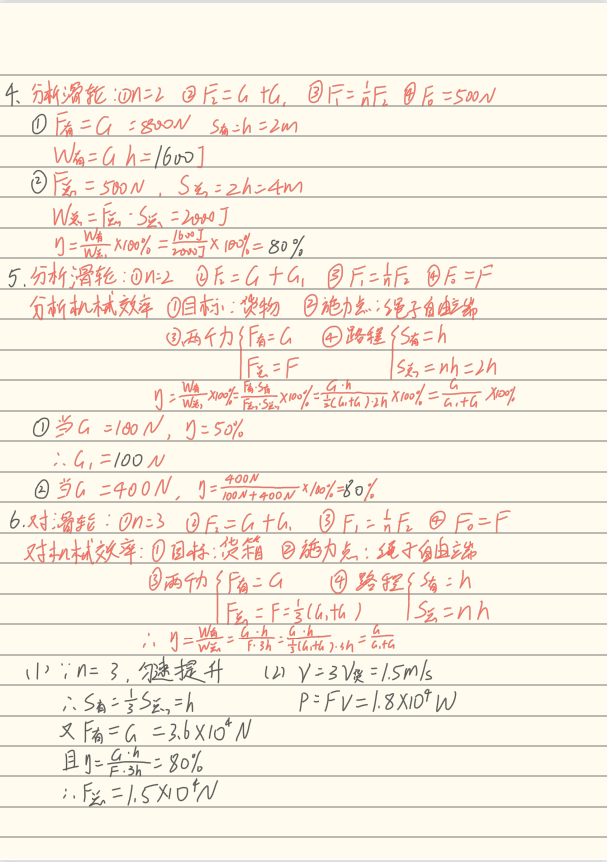 4. 分析滑轮:①n=2 ②F₂=G+G₁ ③F₁=1/n F₂ ④F₀=500N
①F有=G=800N S有=h=2m
W有=Gh=1600J
②F总=500N, S总=2h=4m
W总=F总·S总=2000J
η=W有/W总×100%=1600J/2000J×100%=80%
5. 分析滑轮:①n=2 ②F₂=G+G₁ ③F₁=1/n F₂ ④F₀=F
分析机械效率 ①目标:货物 ②施力点:绳子自由端
③两个力{F有=G ④路程{S有=h
F总=F S总=nh=2h
η=W有/W总×100%=F有·S有/F总·S总×100%=G·h/½(G₁+G)·2h×100%=G/G₁+G×100%
①当G=100N, η=50%
∴G₁=100N
②当G=400N, η=400N/100N+400N×100%=80%
6. 对滑轮:①n=3 ②F₂=G+G₁ ③F₁=1/n F₂ ④F₀=F
对机械效率:①目标:货箱 ②施力点:绳子自由端
③两个力{F有=G ④路程{S有=h
F总=F=⅓(G₁+G) S总=nh
∴η=W有/W总=G·h/F·3h=G·h/⅓(G₁+G)·3h=G/G₁+G
(1)∵n=3,匀速提升 (2)V=3V货=1.5m/s
∴S有=⅓S总=h P=FV=1.8×10⁴W
又F有=G=3.6×10⁴N
且η=G·h/F·3h=80%
∴F总=1.5×10⁴N